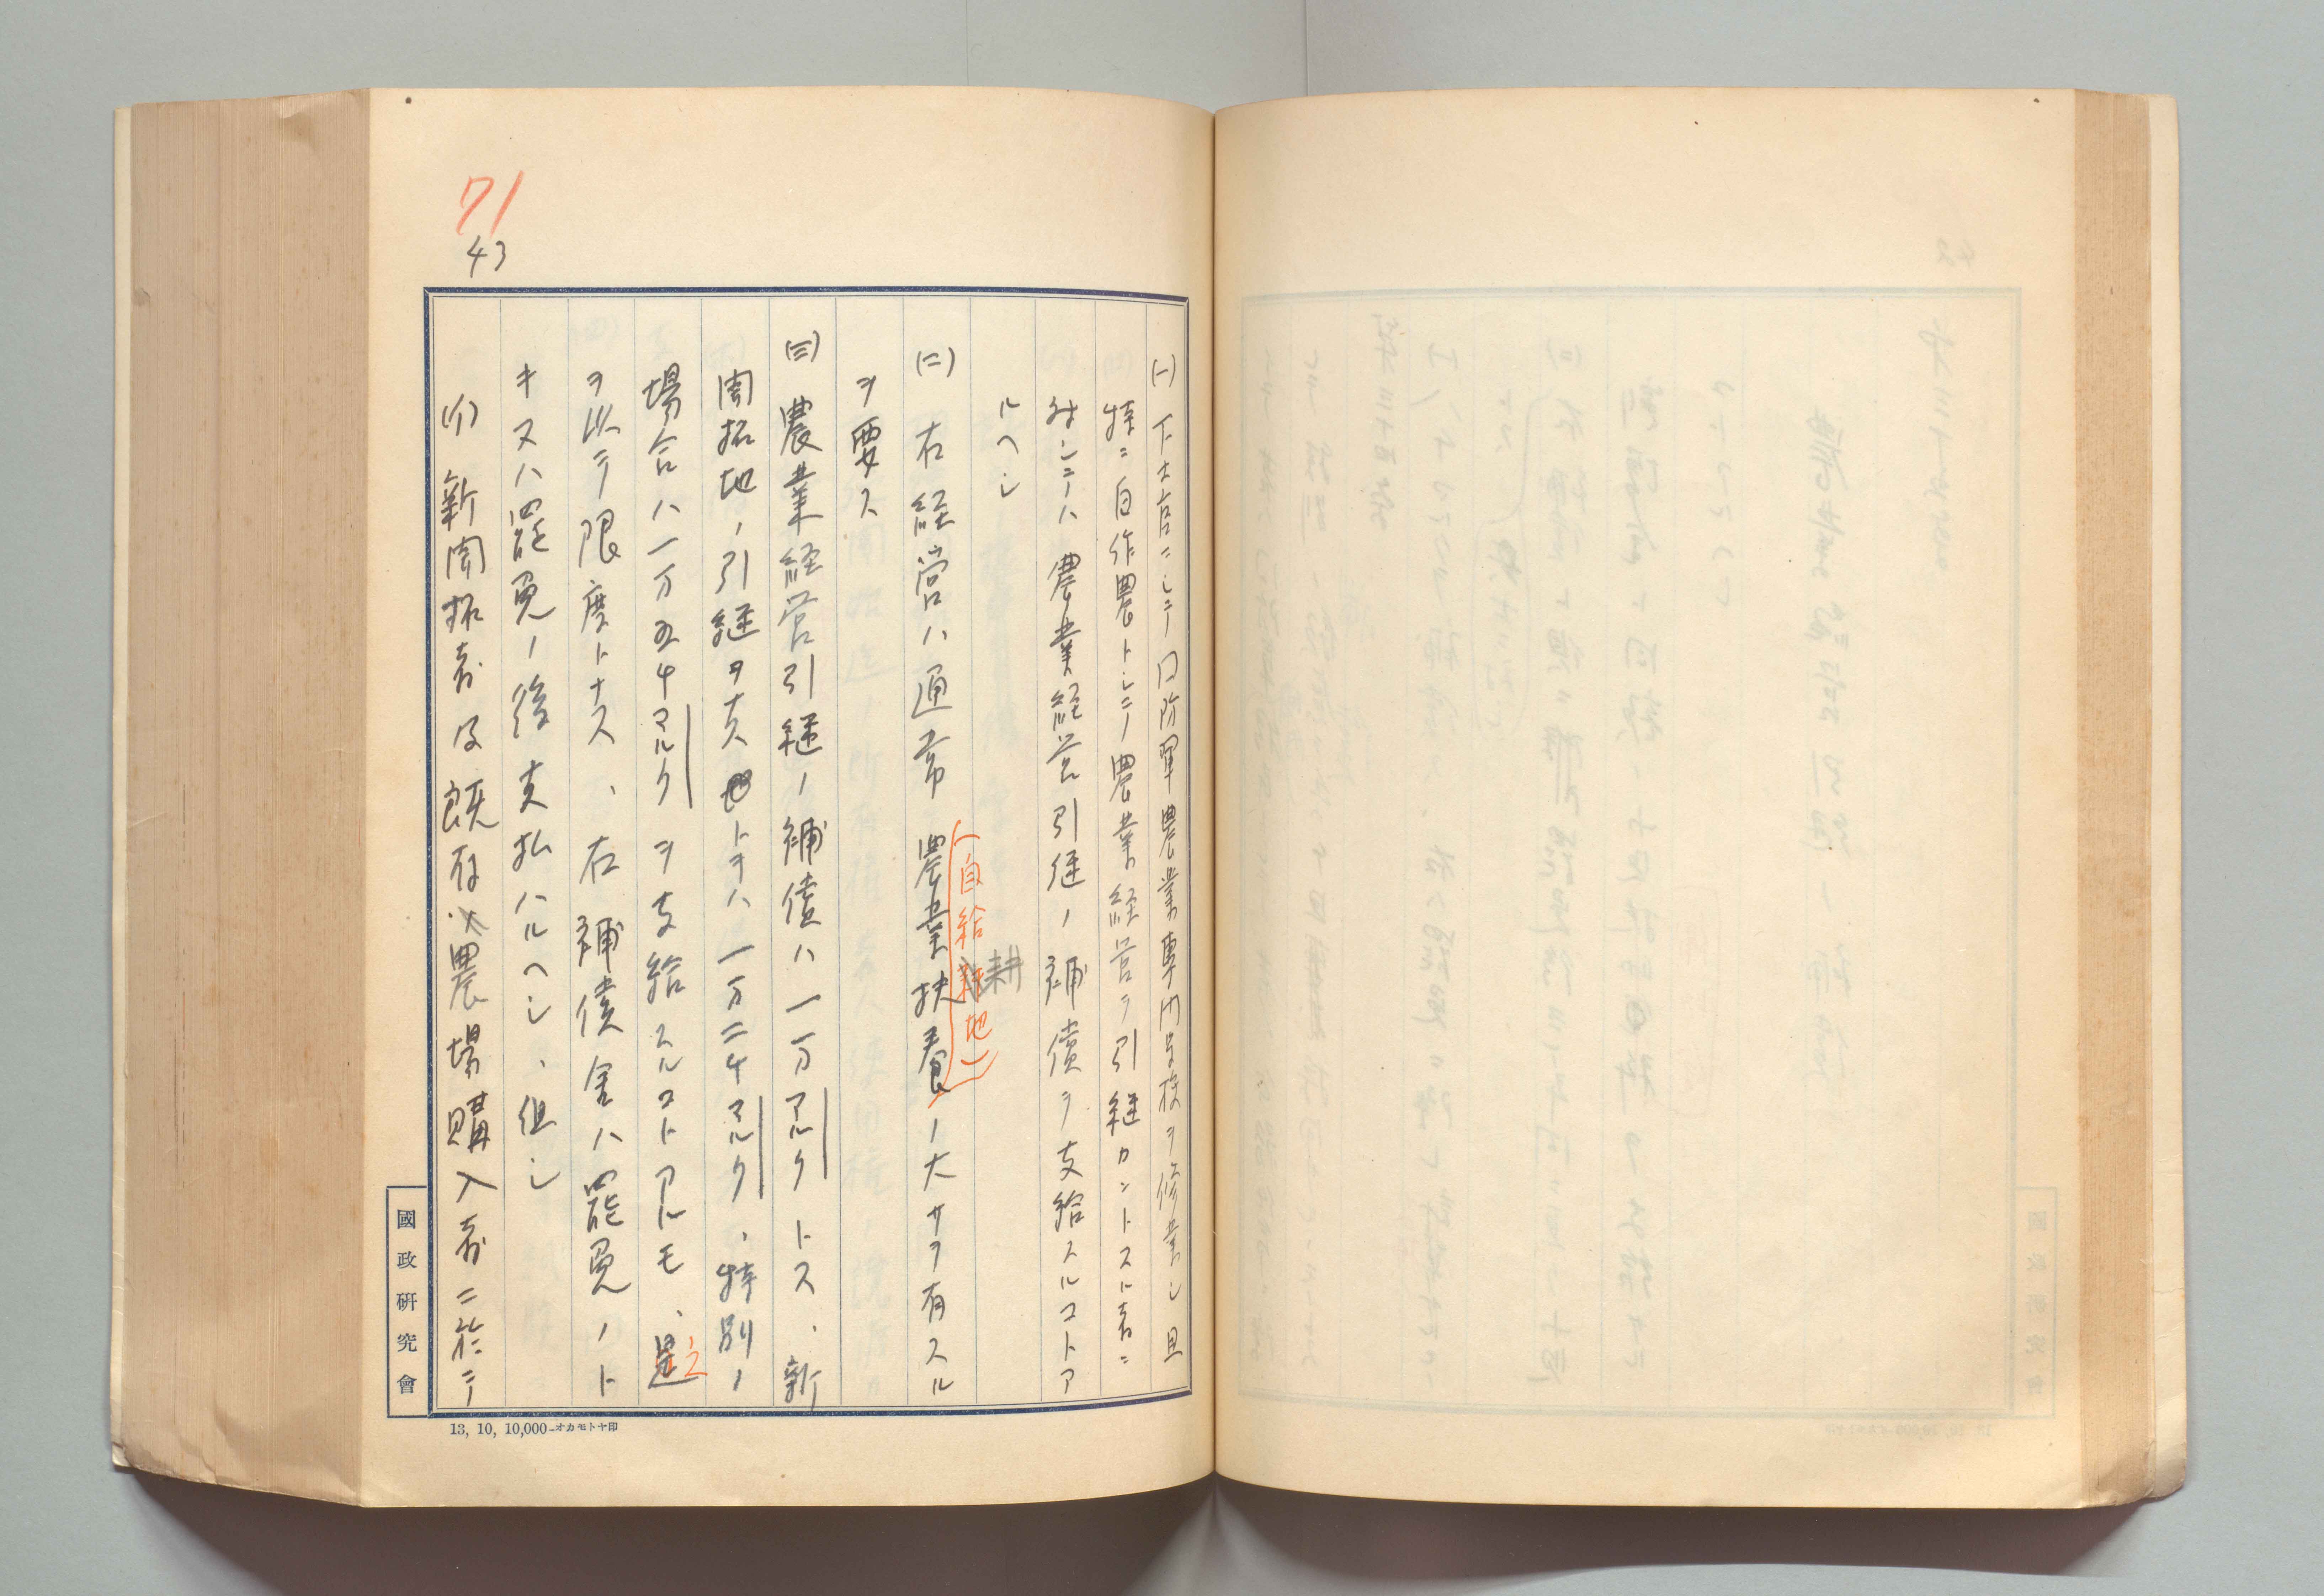 71
43
(一) 下士官ニシテ国防軍農業専門学校ヲ修業シ且
特ニ自作農トシテ農業経営ヲ引継カントスル者ニ
対シテハ農業経営引継ノ補償ヲ支給スルコトア
ルヘシ
(二) 右経営ハ通常農業扶養ノ大サヲ有スル
(自給耕地)
ヲ要ス
(三) 農業経営引継ノ補償ハ一万マルクトス、新
開拓地ノ引継ヲ為ストキハ一万二千マルク、特別ノ
場合ハ一万五千マルクヲ支給スルコトアルモ、之
ヲ以テ限度トナス、右補償金ハ罷免ノト
キ又ハ罷免ノ後支払ハルヘシ、但シ
(イ) 新開拓者及既存農場購入者ニ於テ
國政研究會
13, 10, 10,000—オカモトヤ印